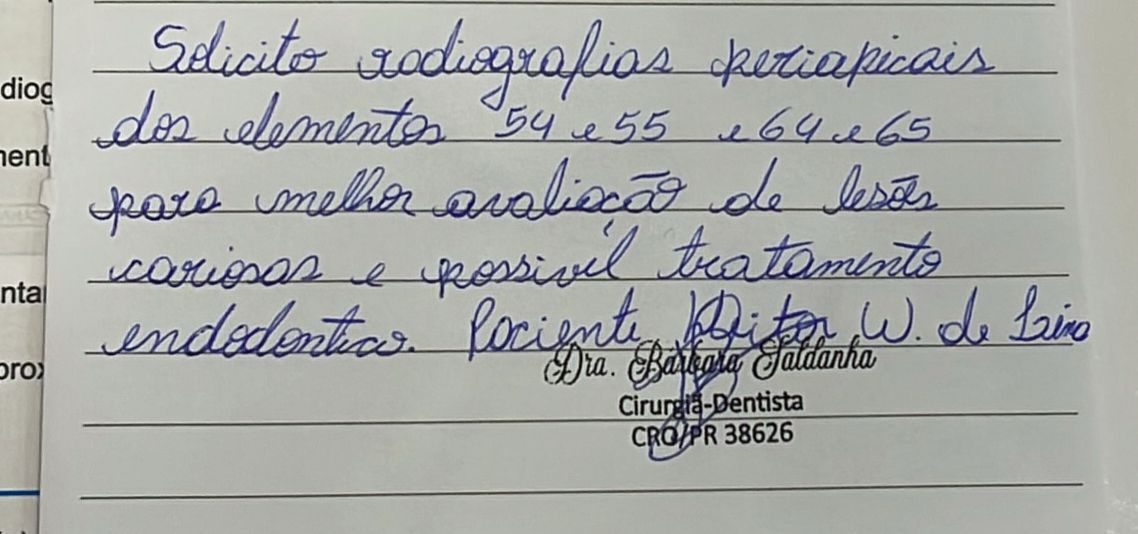 Solicito radiografias periapicais
diog
dos elementos 54 e 55 e 64 e 65
nent
para melhor avaliação de lesões
cariosas e possivél tratamento
nta
endodontico. Paciente Heitor W. de Lima
Dra. Bárbara Saldanha
prox
Cirurgiã-Dentista
CRO/PR 38626